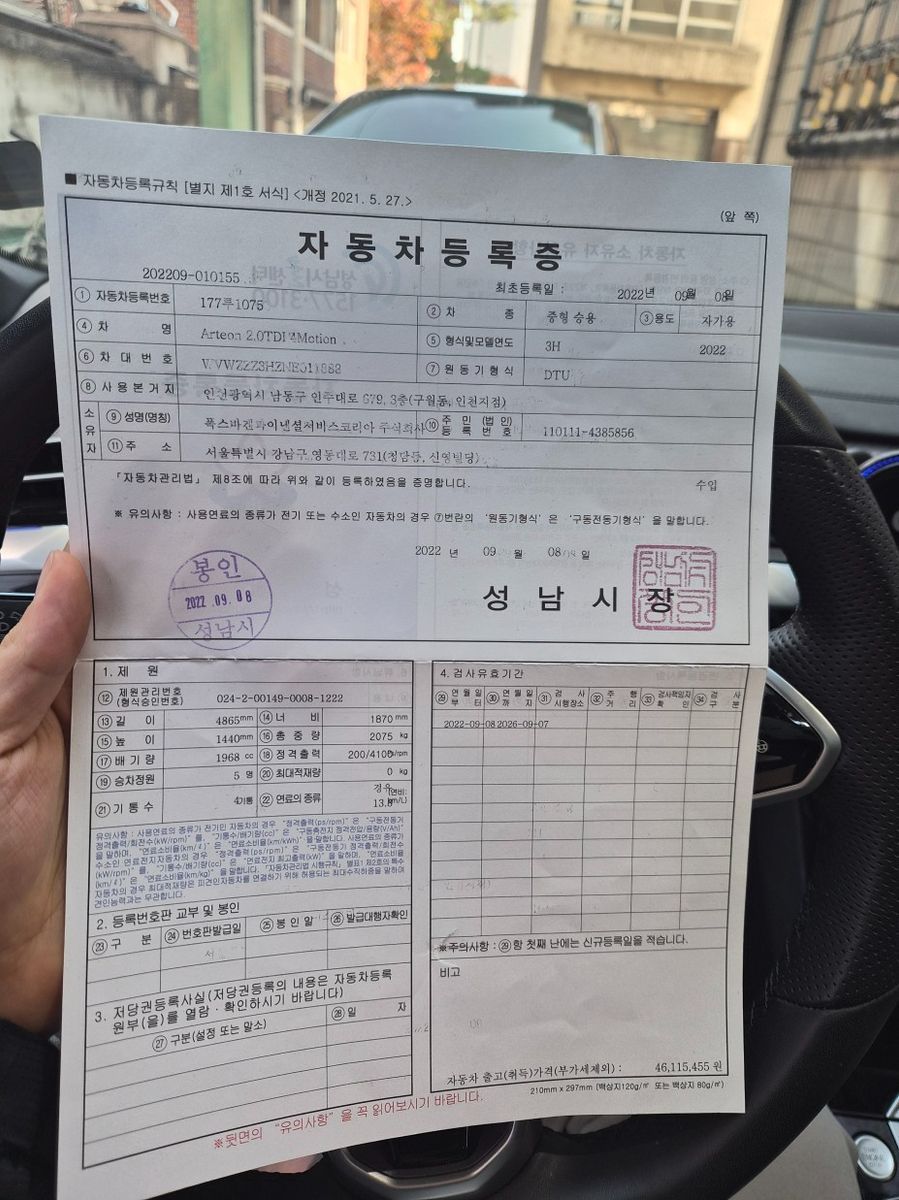 ■ 자동차등록규칙 [별지 제1호 서식] <개정 2021. 5. 27.>
(앞 쪽)
자 동 차 등 록 증
202209-010155
최초등록일 : 2022년 09월 08일
① 자동차등록번호 177루1075 ② 차 종 중형 승용 ③용도 자가용
④ 차 명 Arteon 2.0TDI 4Motion ⑤ 형식및모델연도 3H 2022
⑥ 차 대 번 호 ⑦ 원 동 기 형 식 DTU
⑧ 사 용 본 거 지 인천광역시 남동구 인주대로 679, 3층(구월동, 인천지점)
소유자 ⑨ 성명(명칭) 폭스바겐파이낸셜서비스코리아 주식회사 ⑩ 주 민 (법 인) 등 록 번 호 110111-4385856
⑪ 주 소 서울특별시 강남구 영동대로 731(청담동, 신영빌딩)
「자동차관리법」 제8조에 따라 위와 같이 등록하였음을 증명합니다. 수입
※ 유의사항 : 사용연료의 종류가 전기 또는 수소인 자동차의 경우 ⑦번란의 '원동기형식' 은 '구동전동기형식' 을 말합니다.
2022 년 09 월 08 일
봉인
2022 .09. 08
성남시
성 남 시 장
1. 제 원
⑫ 제원관리번호 (형식승인번호) 024-2-00149-0008-1222
⑬ 길 이 4865mm ⑭ 너 비 1870 mm
⑮ 높 이 1440mm ⑯ 총 중 량 2075 kg
⑰ 배 기 량 1968 cc ⑱ 정격출력 200/4100
⑲ 승차정원 5 명 ⑳ 최대적재량 0 kg
㉑ 기 통 수 4기통 ㉒ 연료의 종류 경유
유의사항 : 사용연료의 종류가 전기인 자동차의 경우 "정격출력(ps/rpm)" 은 "구동전동기
정격출력/회전수(kW/rpm)" 를, "기통수/배기량(cc)" 은 "구동축전지 정격전압/용량(V/Ah)"
을 말하며, "연료소비율(km/ℓ)" 은 "연료소비율(km/kWh)" 을 말합니다. 사용연료의 종류가
수소인 연료전지자동차의 경우 "정격출력(ps/rpm)" 은 "구동전동기 정격출력/회전수
(kW/rpm)" 를, "기통수/배기량(cc)" 은 "연료전지 최고출력(kW)" 을 말하며, "연료소비율
(km/ℓ)" 은 "연료소비율(km/kg)" 을 말합니다. 「자동차관리법 시행규칙」 별표1 제2호의 특수
자동차의 경우 최대적재량은 피견인자동차를 연결하기 위해 허용되는 최대수직하중을 말하며
견인능력과는 무관합니다.
2. 등록번호판 교부 및 봉인
㉓ 구 분 ㉔ 번호판발급일 ㉕ 봉 인 일 ㉖ 발급대행자확인
3. 저당권등록사실(저당권등록의 내용은 자동차등록
원부(을)를 열람 · 확인하시기 바랍니다)
㉗ 구분(설정 또는 말소) ㉘ 일 자
4. 검사유효기간
㉙ 연 월 일 부 터 ㉚ 연 월 일 까 지 ㉛ 검 사 시행장소 ㉜ 주 행 거 리 ㉝ 검사책임자 확 인 ㉞ 검 사 구 분
2022-09-08 2026-09-07
※주의사항 : ㉙항 첫째 난에는 신규등록일을 적습니다.
비고
자동차 출고(취득)가격(부가세제외) : 46,115,455 원
210mm x 297mm (백상지120g/㎡ 또는 백상지 80g/㎡)
※뒷면의 "유의사항" 을 꼭 읽어보시기 바랍니다.